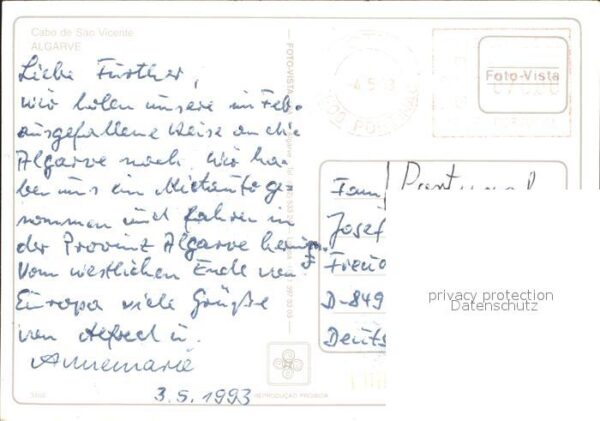 Cabo de São Vicente
ALGARVE
Liebe Further,
wir holen unsere im Feb.
ausgefallene Reise an die
Algarve nach. Wir ha-
ben uns ein Mietauto ge-
nommen und fahren in
der Provinz Algarve herum.
Vom westlichen Ende von
Europa viele Grüße
von Alfred u.
Annemarie
3.5.1993
FOTO-VISTA
REPRODUÇÃO PROIBIDA
Foto-Vista
Portugal
Fam.
Josef
D-849
privacy protection
Datenschutz